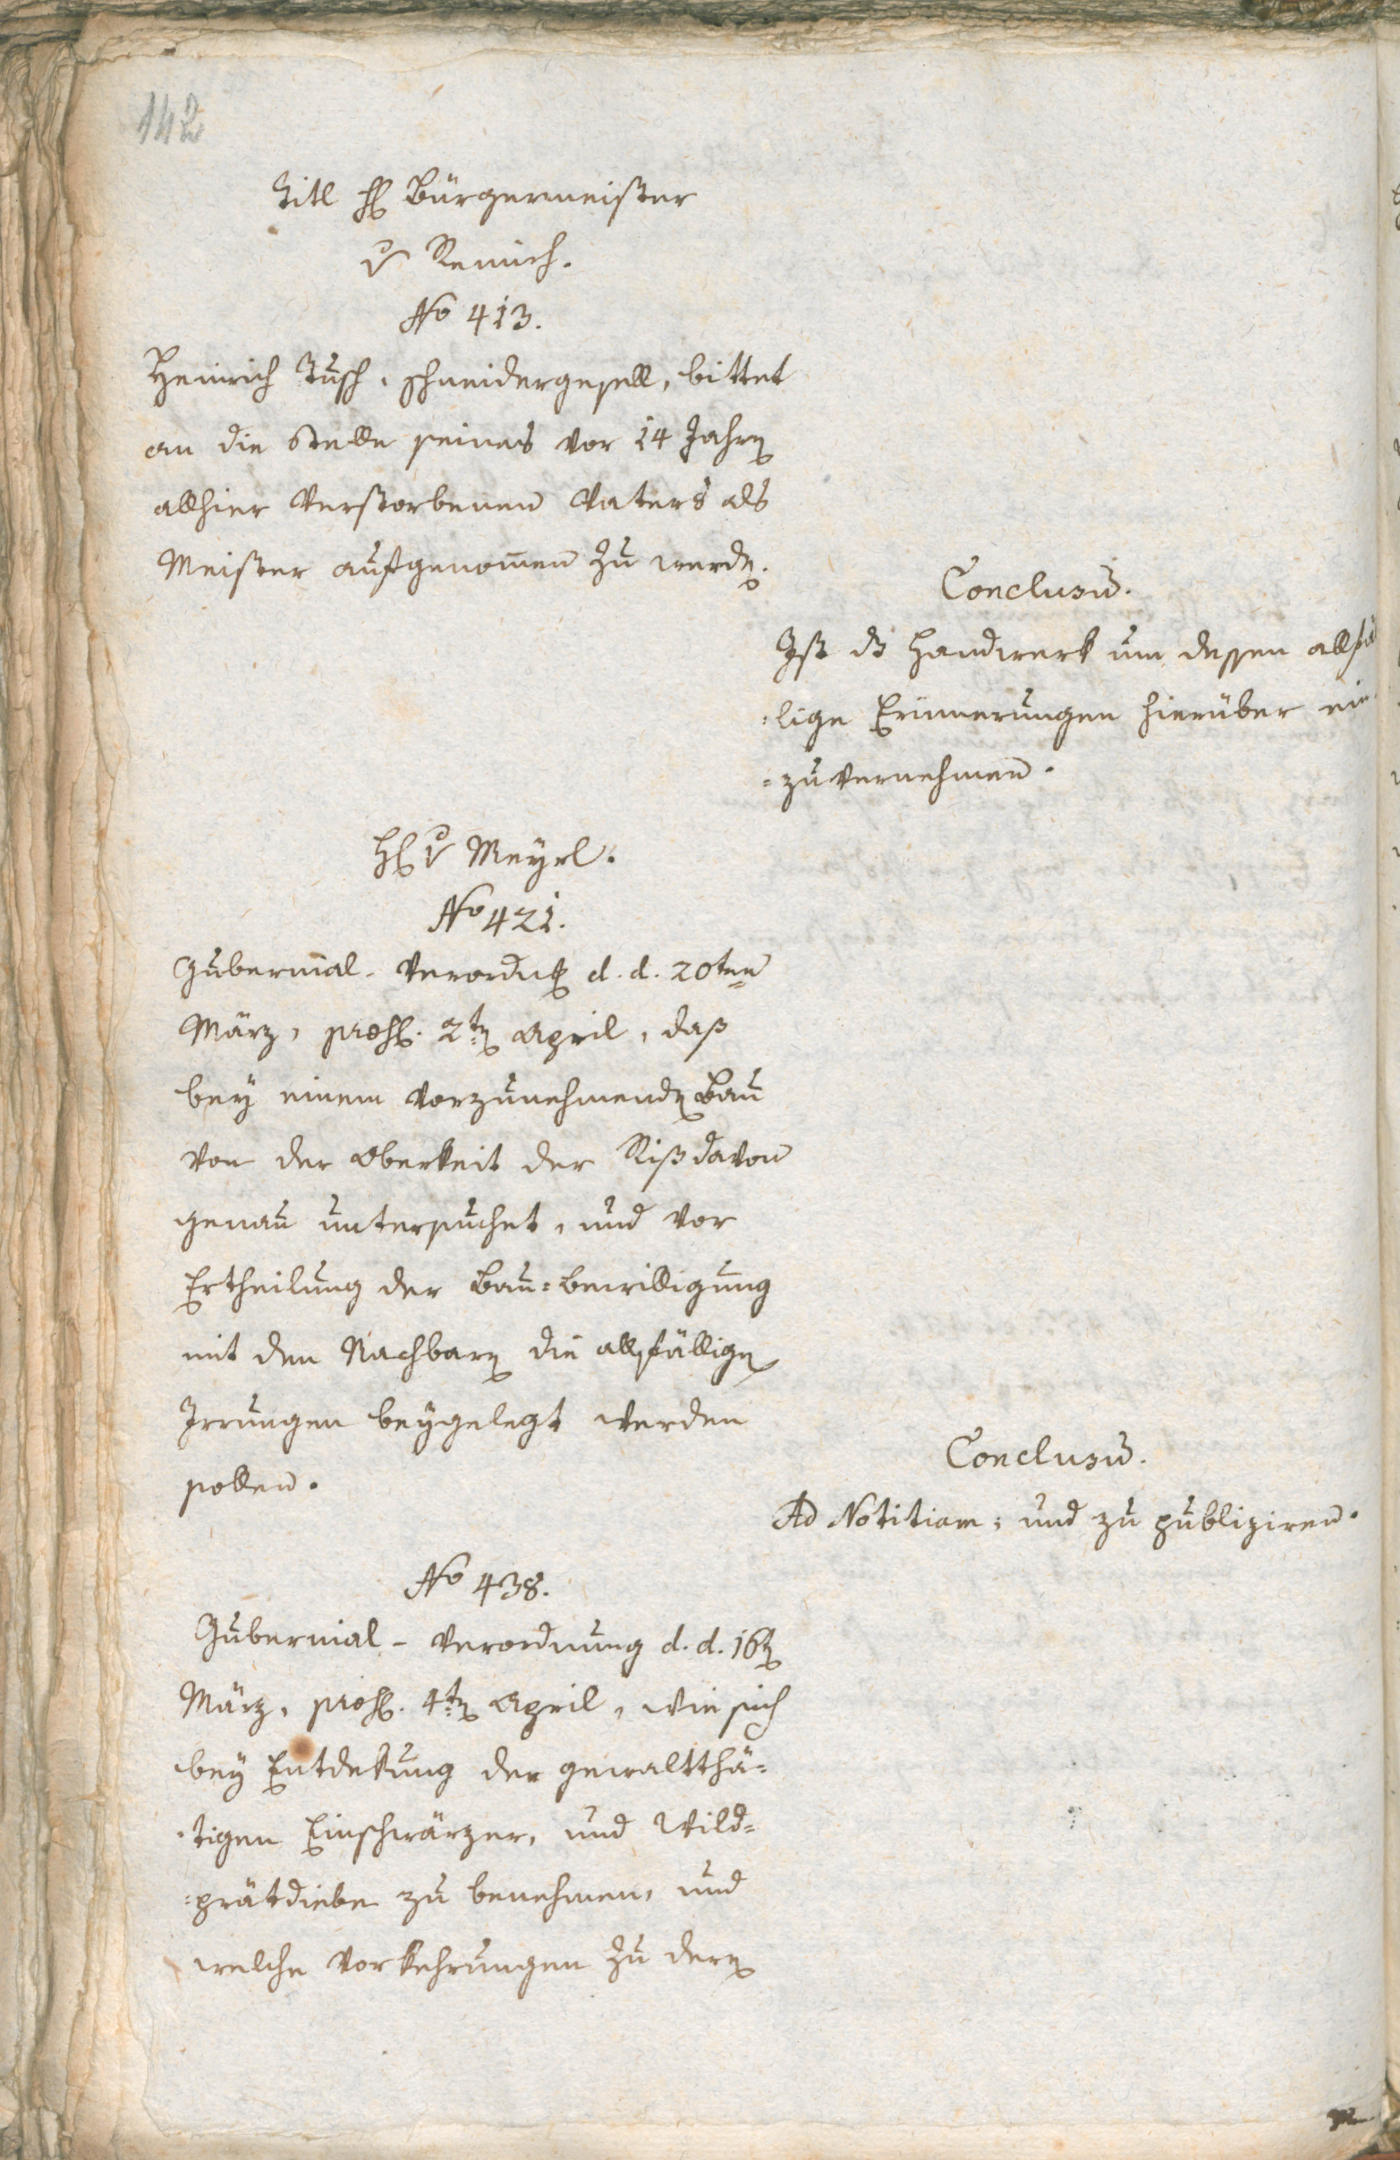 142
Titl H Bürgermeister
v Remich.
No 413.
Heinrich Tusch, schneidergesell, bittet
an die Stelle seines vor 14 Jahren
allhier Verstorbenen Vaters als
Meister aufgenomen zu werden.
Conclusum.
Ist ds Handwerk um dessen allfäl
=lige Erinnerungen hierüber ein
=zuvernehmen.
H v Meyrl.
No 421.
Gubernial-Verordng d. d. 20ten
März, praes. 2ten April, daß
bey einem vorzunehmenden Bau
von der Oberkeit der Riß davon
genau untersuchet, und vor
Ertheilung der Bau=bewilligung
mit den Nachbaren die allfälligen
Irrungen beygelegt werden
sollen.
Conclusum.
Ad Notitiam; und zu publiziren.
No 438.
Gubernial-Verordnung d. d. 16ten
März, praes. 4ten April, wie sich
bey Entdekung der gewaltthä=
=tigen Einschwärzer, und Wild=
=prätdiebe zu benehmen, und
welche Vorkehrungen zu deren